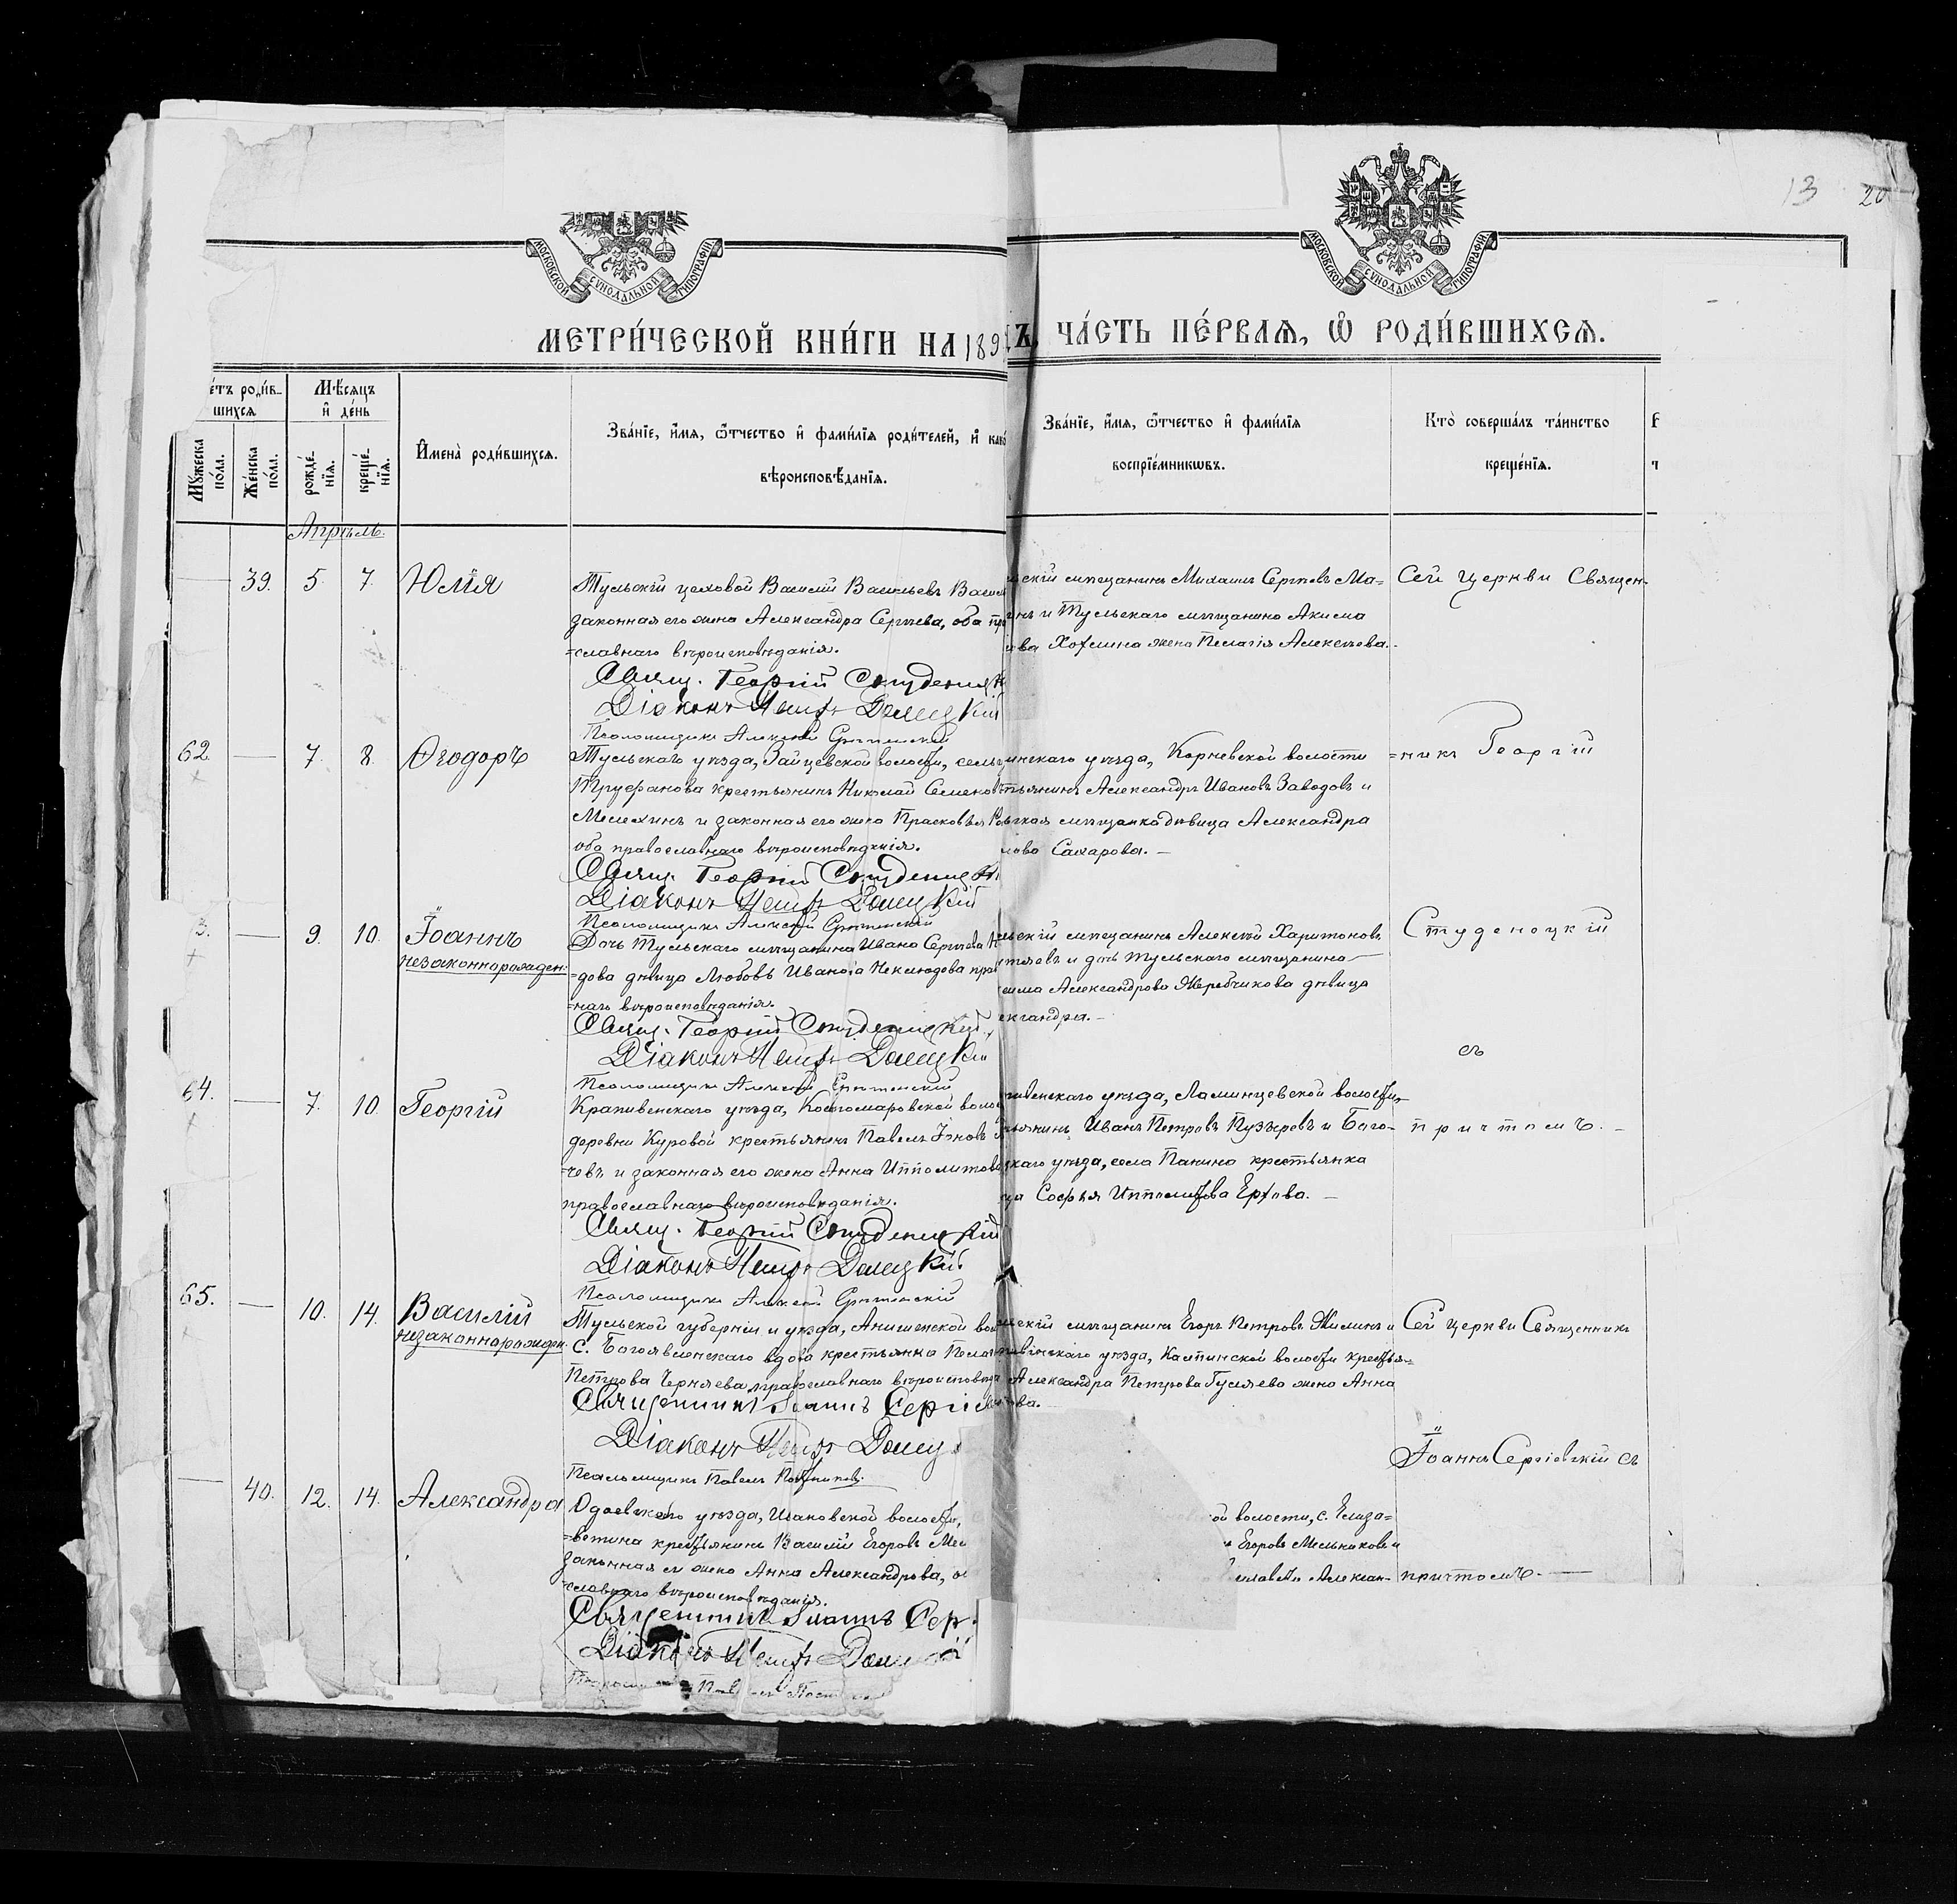 13 20
МОСКОВСКОЙ СУНОДАЛЬНОЙ ТИПОГРАФІИ
МОСКОВСКОЙ СУНОДАЛЬНОЙ ТИПОГРАФІИ
МЕТРИ́ЧЕСКОЙ КНИ́ГИ НА 189
Ъ, ЧА́СТЬ ПЕ́РВАѦ, Ѽ РОДИ́ВШИХСѦ.
е́тъ роди́в-
шихсѧ
Мѣ́сѧцъ
и҆ де́нь
Мꙋ́жеска по́ла.
Же́нска по́ла.
рожде́-нїѧ.
креще́-нїѧ.
И҆мена̀ роди́вшихсѧ.
Зва́нїе, и҆́мѧ, ѻ҆́тчество и҆ фами́лїѧ роди́телей, и҆ како́
вѣроисповѣ́данїѧ.
Зва́нїе, и҆́мѧ, ѻ҆́тчество и҆ фами́лїѧ
воспрїе́мникѡвъ.
Кто̀ соверша́лъ та́инство
креще́нїѧ.
Апрѣль.
39. 5. 7. Юлія
Тульскій цеховой Василій Васильевъ Васил
законная его жена Александра Сергѣева, оба пра
=славнаго вѣроисповѣданія.
Свящ. Георгій Студенецк
Діаконъ Петръ Донецкій
Псаломщикъ Алексѣй Срѣтенскій
скій мѣщанинъ Михаилъ Сергѣевъ Ма=
нъ и Тульскаго мѣщанина Акима
ова Хотлина жена Пелагія Алексѣева.
Сей церкви Священ-
62. 7. 8. Ѳеодоръ
Тульскаго уѣзда, Зайцевской волости, сельц
Труфанова крестьянинъ Николай Семенов
Мелехинъ и законная его жена Прасковья
оба православнаго вѣроисповѣданія.
Свящ. Георгій Студенецк
Діаконъ Петръ Донецкій
Псаломщикъ Алексѣй Срѣтенскій
инскаго уѣзда, Корневской волости
тьянинъ Александръ Ивановъ Заводовъ и
ская мѣщанка дѣвица Александра
лова Сахарова. —
=никъ Георгій
3. 9. 10. Іоаннъ
незаконнорожден:
Дочь Тульскаго мѣщанина Ивана Сергѣева Н
=дова дѣвица Любовь Иванова Неклюдова прав
=наго вѣроисповѣданія.
Свящ. Георгій Студенецкій
Діаконъ Петръ Донецкій
Псаломщикъ Алексѣй Срѣтенскій
льскій мѣщанинъ Алексѣй Харитоновъ
и дочь Тульскаго мѣщанина
Александрова Жеребчикова дѣвица
ександра. —
Студенецкій
съ
64. 7. 10. Георгій
Крапивенскаго уѣзда, Костомаровской воло
деревни Куровой крестьянинъ Павелъ Іоновъ
=чевъ и законная его жена Анна Ипполитова
православнаго вѣроисповѣданія.
Свящ. Георгій Студенецкій
Діаконъ Петръ Донецкій
Псаломщикъ Алексѣй Срѣтенскій
пивенскаго уѣзда, Ламинцевской волости,
тьянинъ Иванъ Петровъ Пузыревъ и Бого-
цкаго уѣзда, села Панино крестьянка
ца Софья Ипполитова Ерхова. —
причтомъ. —
65. 10. 14. Василій
незаконнорожден:
Тульской губерніи и уѣзда, Анишенской вол
с. Богоявленскаго вдова крестьянка Пелаг
Петрова Черняева, православнаго вѣроисповѣд
Священникъ Іоаннъ Сергіев
Діаконъ Петръ Донец
Псаломщикъ Павелъ
скій мѣщанинъ Егоръ Петровъ Жилинъ и
пивенскаго уѣзда, Каспинской волости крестья=
Александра Петрова Гуляева жена Анна
ова.
Сей церкви Священникъ
Іоаннъ Сергіевскій съ
40. 12. 14. Александра
Одоевскаго уѣзда, Ивановской волости,
=ветина крестьянинъ Василій Егоровъ Мел
законная его жена Анна Александрова, о
=славнаго вѣроисповѣданія.
Священникъ Іоаннъ Сер
Діаконъ Петръ Донецкій
ой волости, с. Елиза=
Егоровъ Мельниковъ и
Алексан-
причтомъ. —